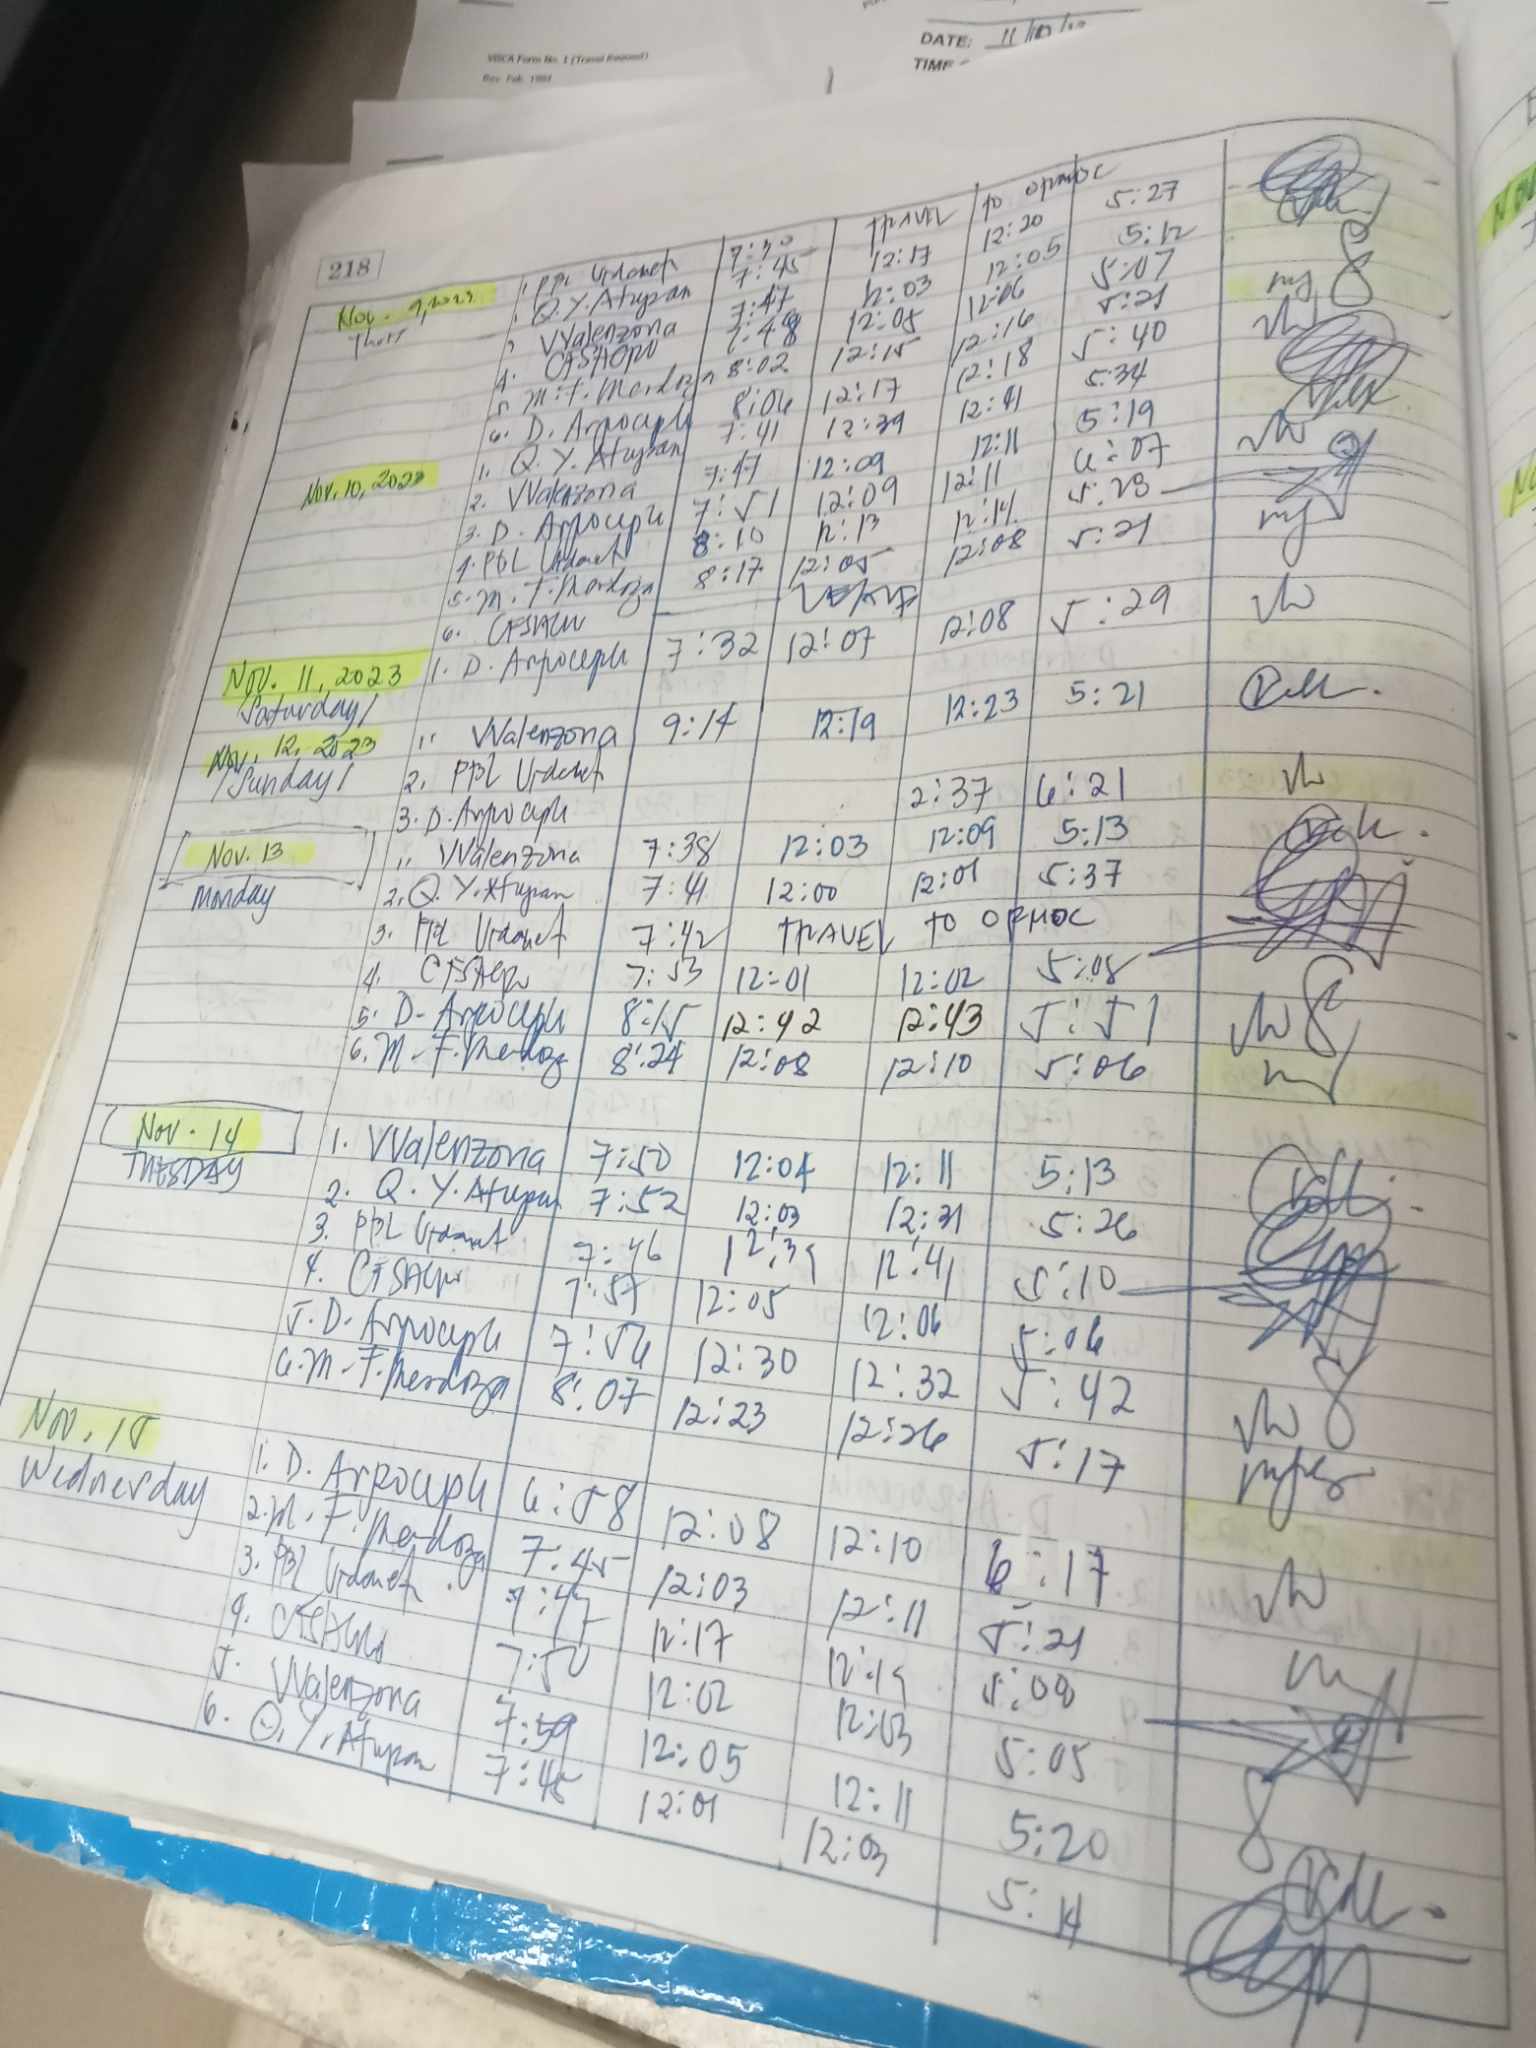 VISCA Form No. 1 (Travel Request)
Rev. Feb. 1993
DATE: 11/10/
TIME
218
Nov. 9, 2023 1. PBL Urdanet 7:30 TRAVEL TO ORMOC
Thurs Q. Y. Atupan 7:45 12:17 12:20 5:27
3 VValenzona 7:47 12:03 12:05 5:12
4. CFSAcpo 7:48 12:05 12:06 5:07
5. M. F. Mendoza 8:02 12:15 12:16 5:21
6. D. Arpoceph 8:06 12:17 12:18 5:40
Nov. 10, 2023 1. Q. Y. Atupan 7:41 12:39 12:41 5:34
2. VValenzona 7:47 12:09 12:11 5:19
3. D. Arpoceph 7:51 12:09 12:11 6:07
4. PBL Urdanet 8:10 12:13 12:14 5:23
5. M. F. Mendoza 8:17 12:05 12:08 5:21
6. CFSAcpo LEAVE
Nov. 11, 2023 1. D. Arpoceph 7:32 12:07 12:08 5:29
Saturday
Nov. 12, 2023 1. VValenzona 9:14 12:19 12:23 5:21
Sunday 2. PBL Urdanet
3. D. Arpoceph 2:37 6:21
Nov. 13 1. VValenzona 7:38 12:03 12:09 5:13
Monday 2. Q. Y. Atupan 7:41 12:00 12:01 5:37
3. PBL Urdanet 7:42 TRAVEL TO ORMOC
4. CFSAcpo 7:53 12:01 12:02 5:05
5. D. Arpoceph 8:15 12:42 12:43 5:51
6. M. F. Mendoza 8:24 12:08 12:10 5:06
Nov. 14 1. VValenzona 7:50 12:04 12:11 5:13
TUESDAY 2. Q. Y. Atupan 7:52 12:03 12:31 5:26
3. PBL Urdanet 7:46 12:39 12:41 5:10
4. CFSAcpo 7:57 12:05 12:06 5:06
5. D. Arpoceph 7:56 12:30 12:32 5:42
6. M. F. Mendoza 8:07 12:23 12:26 5:17
Nov. 15 1. D. Arpoceph 6:58 12:08 12:10 6:17
Wednesday 2. M. F. Mendoza 7:45 12:03 12:11 5:21
3. PBL Urdanet 7:47 12:17 12:19 5:09
4. CFSAcpo 7:50 12:02 12:03 5:05
5. VValenzona 7:59 12:05 12:11 5:20
6. Q. Y. Atupan 7:45 12:01 12:03 5:14